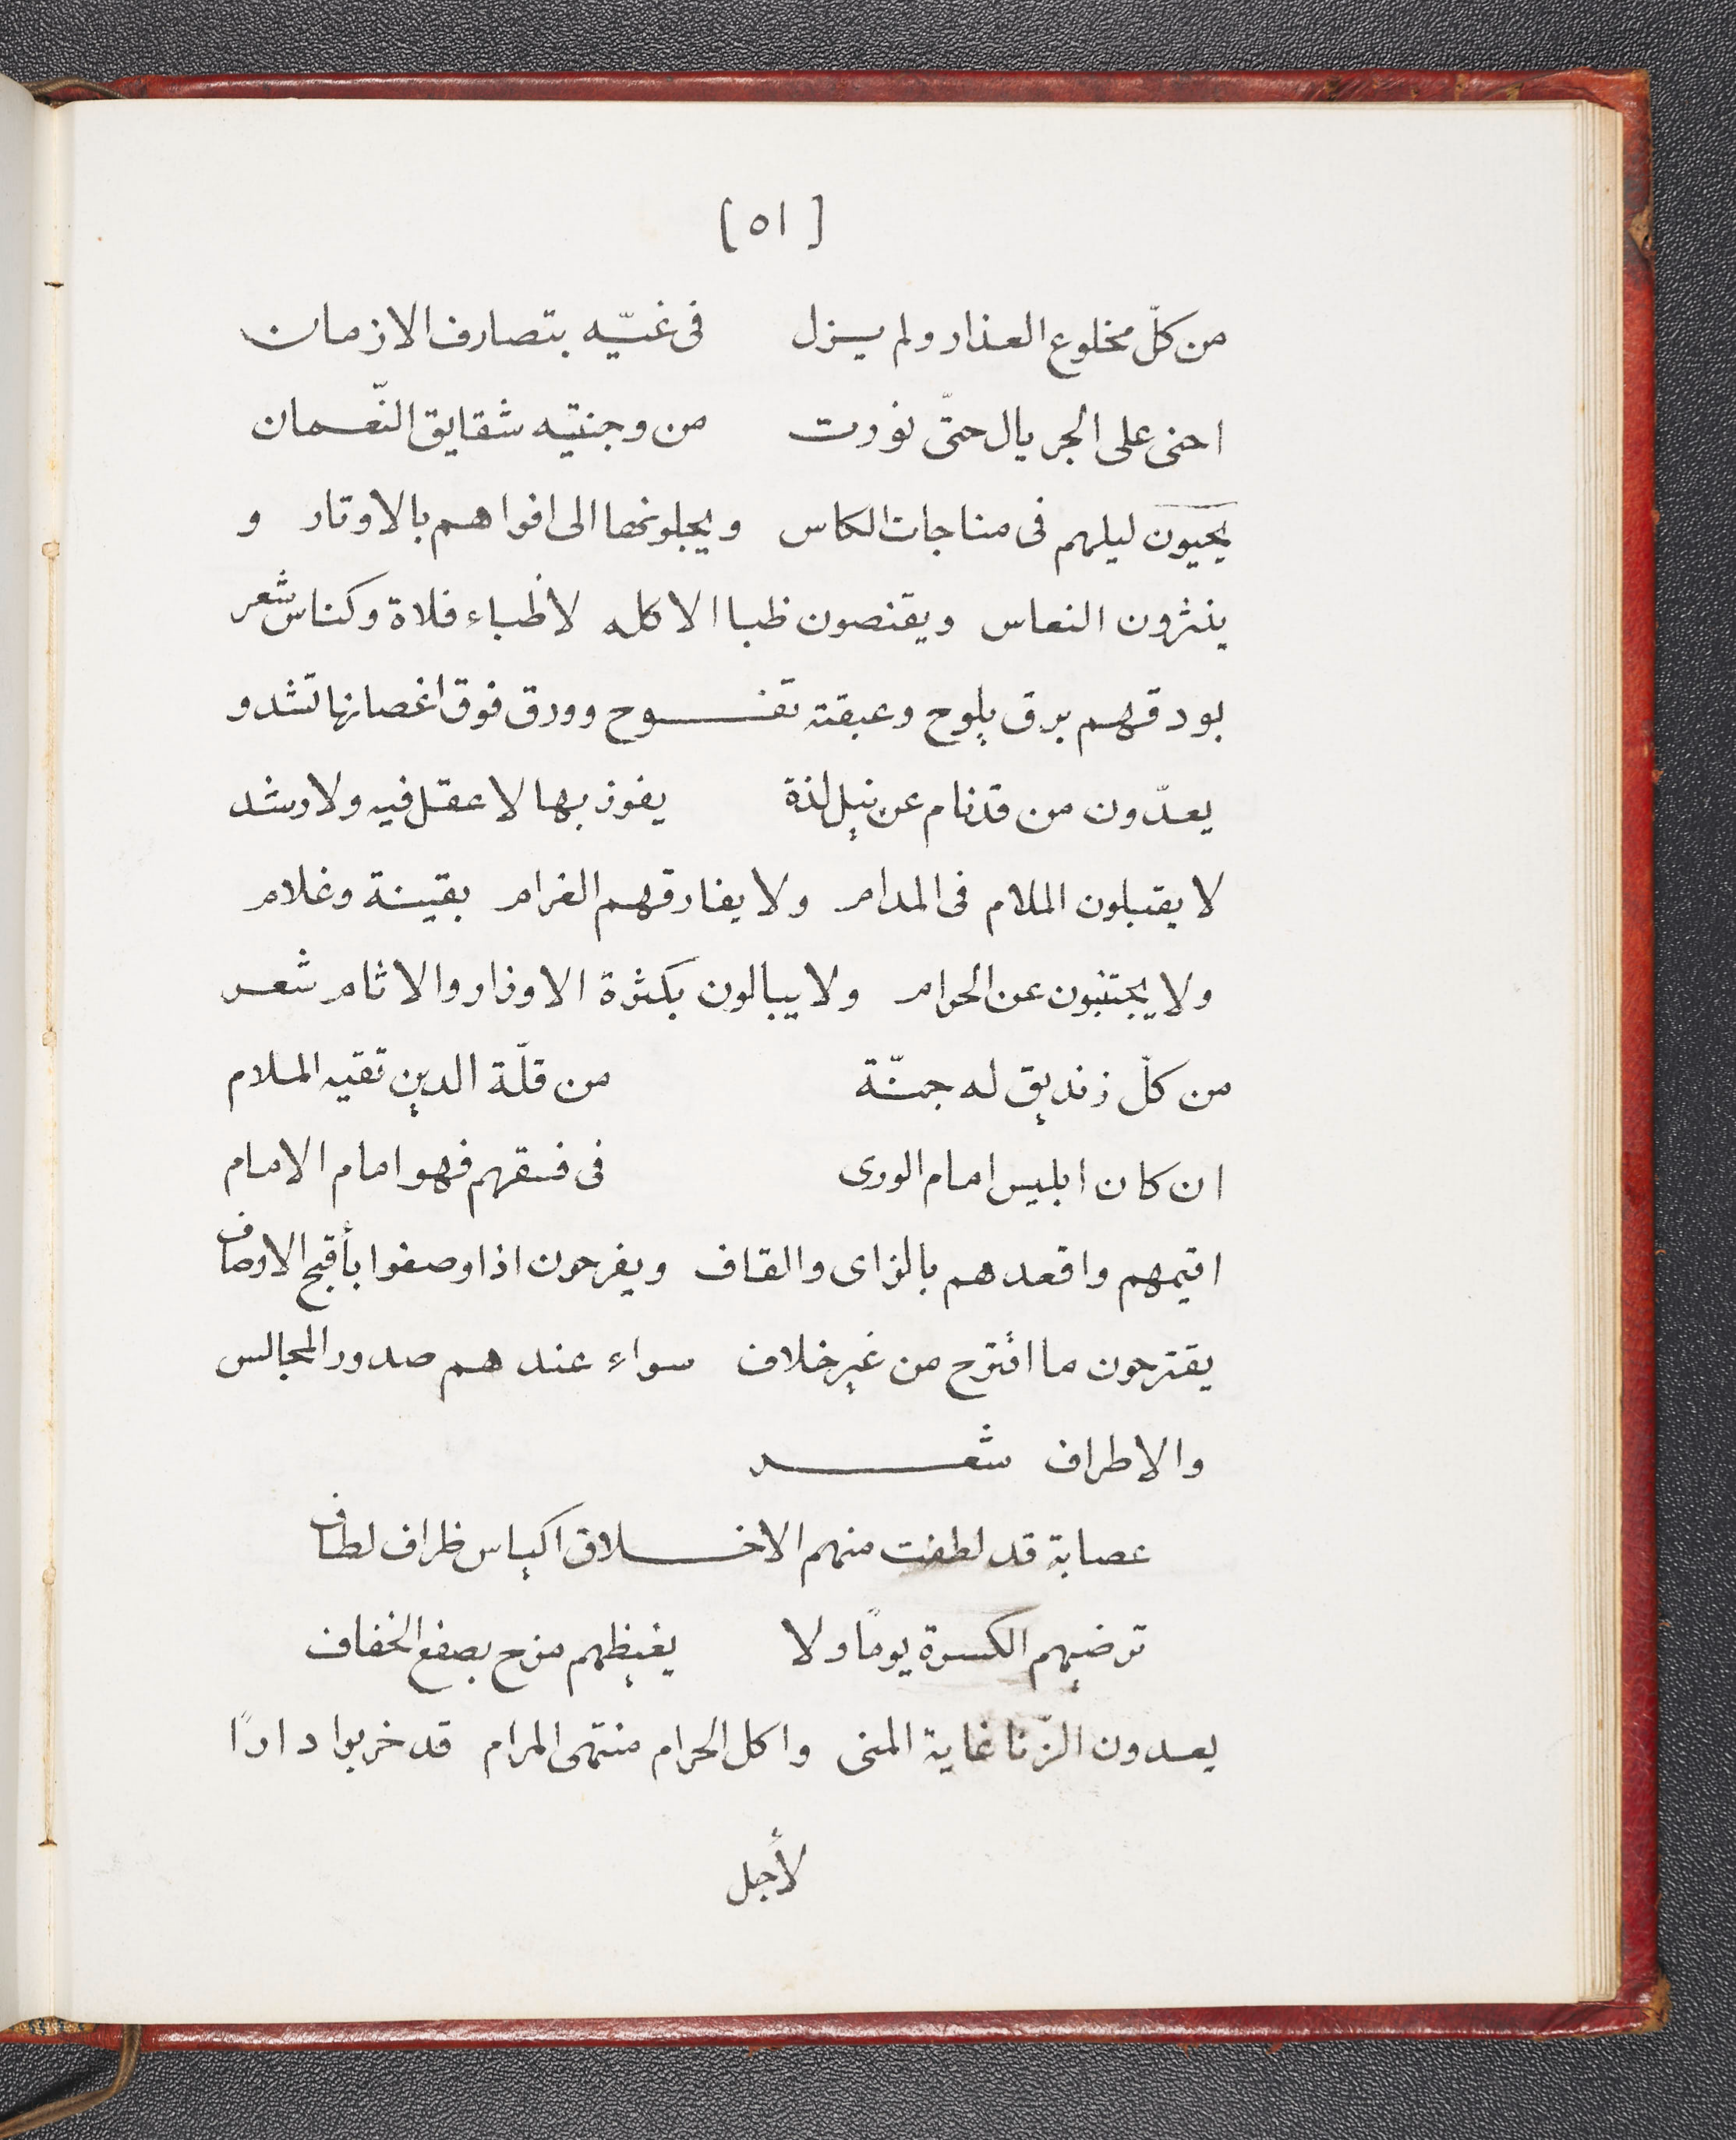 [ ٥١ ]
من كلّ مخلوع العذار ولم يزل في غيّه بتصارف الازمان
احنى على الجريال حتّى نورت من وجنتيه شقايق النّعمان
يحيون ليلهم فى مناجات الكاس ويجلونها الى افواهم بالاوتار و
ينثرون النعاس ويقنصون ظبا الاكله لا ظباء فلاة وكناس شعر
بودقهم برق يلوح وعبقته تفوح وورق فوق اغصانها تشدو
يعدّون من قد نام عن نيل لذة يفوز بها لا عقل فيه ولا رشد
لا يقبلون الملام فى المدام ولا يفارقهم الغرام بقينة وغلام
ولا يجتنبون عن الحرام ولا يبالون بكثرة الاوزار والاثام شعر
من كلّ زنديق له جنّة من قلّة الدين تقيه الملام
ان كان ابليس امام الورى فى فسقهم فهو امام الامام
اقيمهم واقعدهم بالزاى والقاف ويفرحون اذا وصفوا بأقبح الاوصاف
يقترحون ما اقترح من غير خلاف سواء عندهم صدور المجالس
والاطراف شعر
عصابة قد لطفت منهم الاخلاق اكياس ظراف لطاف
ترضيهم الكسرة يومًا ولا يغيظهم مزح بصفع الخفاف
يعدون الزّنا غاية المنى واكل الحرام منتهى المرام قد خربوا دارًا
لأجل